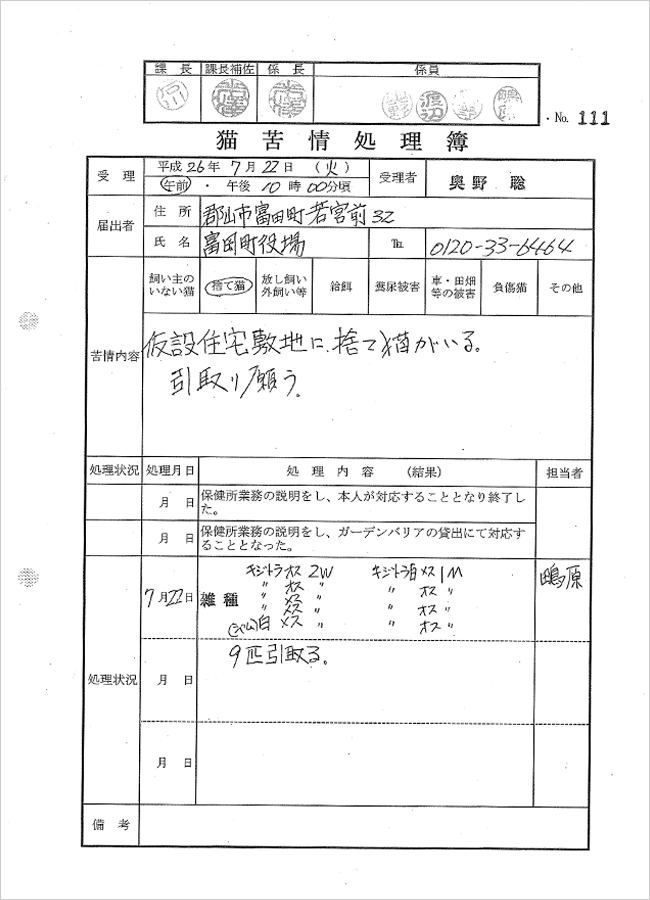 課長 課長補佐 係長 係員
No. 111
猫苦情処理簿
受理 平成26年7月22日（火） 午前・午後10時00分頃 受理者 奥野 聡
届出者 住所 郡山市富田町若宮前32
氏名 富田町役場 ℡ 0120-33-6464
飼い主のいない猫 捨て猫 放し飼い外飼い等 給餌 糞尿被害 車・田畑等の被害 負傷猫 その他
苦情内容 仮設住宅敷地に捨て猫がいる。
引取り願う。
処理状況 処理月日 処理内容（結果） 担当者
月 日 保健所業務の説明をし、本人が対応することとなり終了し
た。
月 日 保健所業務の説明をし、ガーデンバリアの貸出にて対応す
ることとなった。
キジトラ オス 2W キジトラ白 メス 1M
〃 オス 〃 〃 オス 〃
7月22日 雑種 〃 メス 〃 〃 オス 〃
〃 メス 〃
白 メス 〃 〃 オス 〃
鴫原
9匹引取る。
処理状況 月 日
月 日
備考